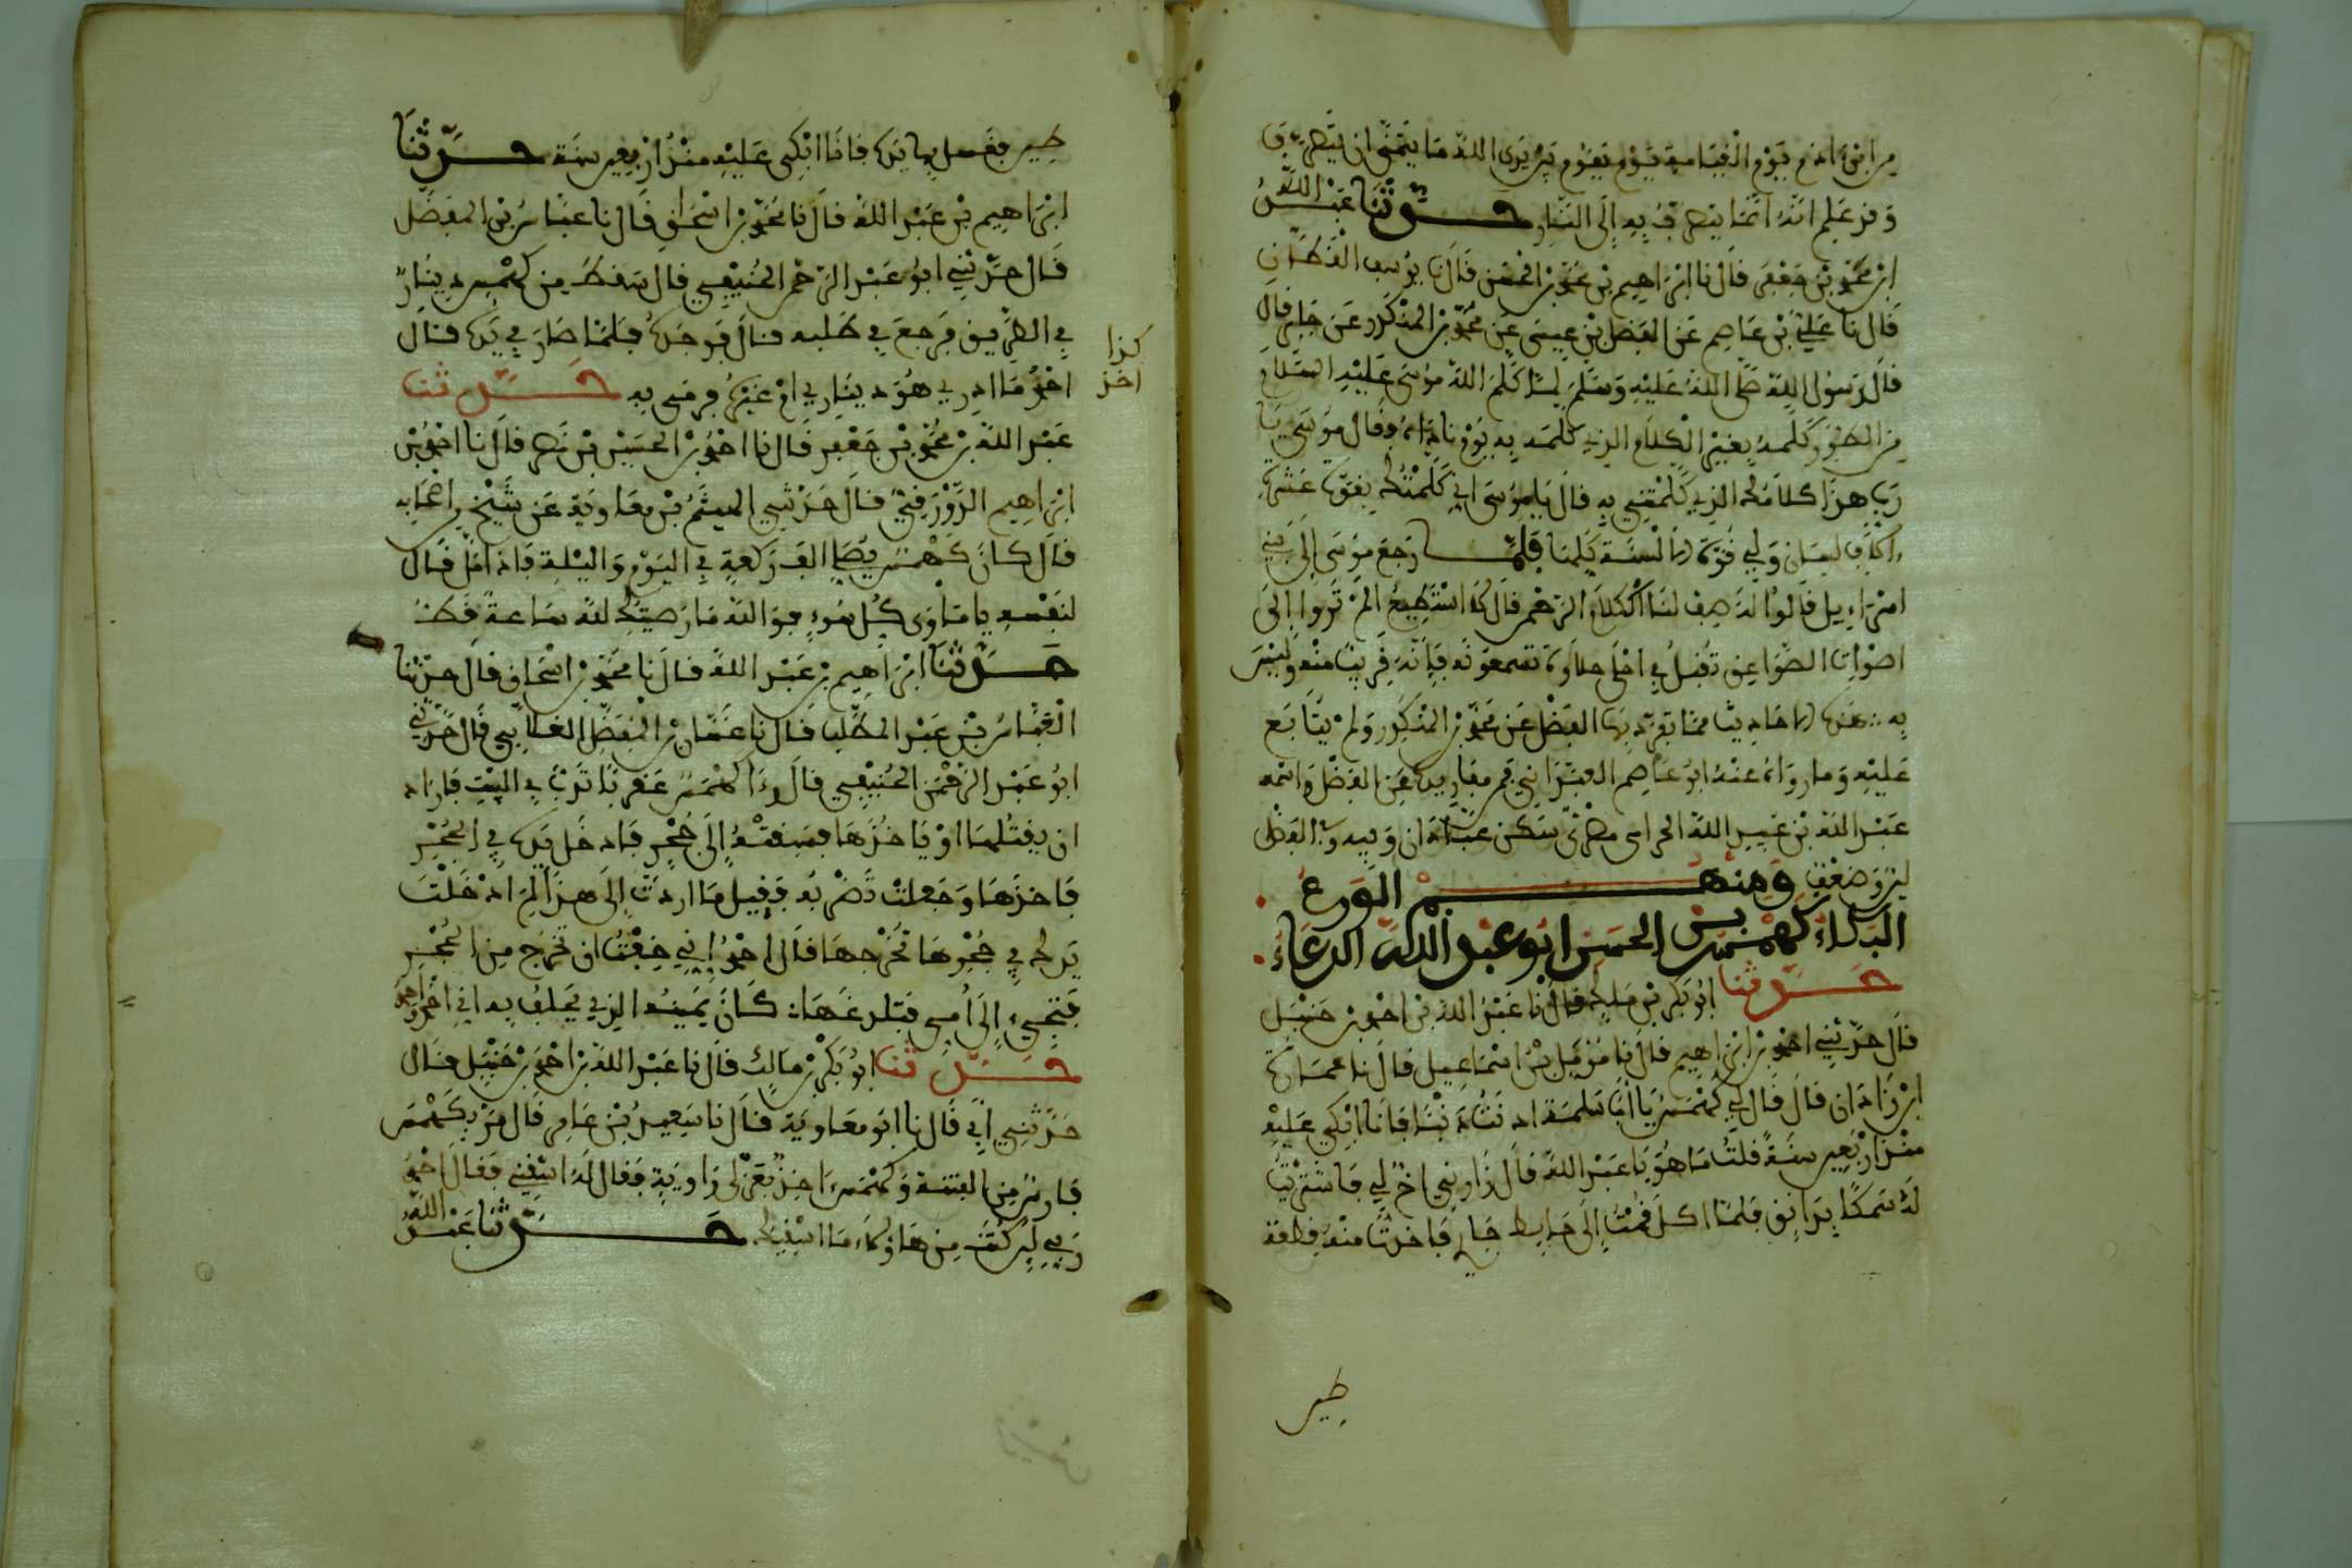 من ابن ءادم يوم القيامة يوم يقوم بين يدى الله ما يتمنى ان ينصرف
وقد علم انه انما ينصرف به إلى النار حدثنا عبد الله
ابن محمد بن جعفر قال نا ابراهيم بن محمد بن الحسن قال نا يوسف القطان
قال نا علي بن عاصم عن الفضل بن عيسى عن محمد بن المنكدر عن جابر قال
قال رسول الله صلى الله عليه وسلم لما كلم الله موسى عليه السلام
من الطور كلمه بغير الكلام الذي كلمه به يوم ناداه فقال موسى يا
رب هذا كلامك الذي كلمتني به قال يا موسى اني كلمتك بقوة عشرة
ءالاف لسان ولي قوة الالسنة كلها فلما رجع موسى إلى بني
اسراءيل قالوا له صف لنا كلام الرحمن قال لا استطيع الم تروا الى
اصوات الصواعق تقبل في احلى حلاوة تسمعونه فإنه قريب منه وليس
به هذه الاحاديث مما تفرد بها الفضل عن محمد بن المنكدر ولم يتابع
عليه وما رواه عنه ابو عاصم العبادانى
عبد الله بن عبيد الله سكن عبادان وفيه وفي الفضل
لين وضعف ومنهم الورع
البكاء كهمس بن الحسن ابو عبد الله الدعاء
حدثنا ابو بكر بن مالك قال نا عبد الله بن احمد بن حنبل
قال حدثني احمد بن ابراهيم قال نا مؤمل بن اسماعيل قال نا عمارة
ابن زاذان قال قال لي كهمس يا ابا سلمة اذنبت ذنبا فانا ابكي عليه
منذ اربعين سنة قلت ما هو يا عبد الله قال زارني اخ لي فاشتريت
له سمكا بدانق فلما اكل قمت إلى حايط جار لي فاخذت منه قطعة
طين
طين فغسل بها يده فانا ابكى عليه منذ اربعين سنة حدثنا
ابراهيم بن عبد الله قال نا محمد بن اسحاق قال نا عباس بن المفضل
قال حدثني ابو عبد الرحمن الحنيفي قال سقط من كهمس دينار
في الطريق فرجع في طلبه قال فوجده فلما صار في يده قال
كذا
اخذ
احمد ما ادري هو ديناري ام غيره فرمى به حدثنا
عبد الله بن محمد بن جعفر قال نا احمد بن الحسين بن نصر قال نا احمد بن
ابراهيم الدورقي قال حدثني الهيثم بن معاوية عن شيخ من اصحابه
قال كان كهمس يصلي الف ركعة في اليوم والليلة فإذا مل قال
لنفسه يا مأوى كل سوء فوالله ما رضيتك لله ساعة قط
حدثنا ابراهيم بن عبد الله قال نا محمد بن اسحاق قال حدثنا
العباس بن عبد المطلب قال نا غسان بن المفضل الغلابي قال حدثني
ابو عبد الرحمن الحنيفي قال رءا كهمس عقربا تدب في البيت فاراد
ان يقتلها او ياخذها فسبقته إلى جحر فادخل يده في الجحر
فاخذها وجعلت تضربه فقيل ما اردت إلى هذا لم ادخلت
يدك في جحرها تخرجها قال احمد إني خفت ان تخرج من الجحر
فتجيء إلى أمي فتلدغها كان يمينه الذي يحلف به اني احمد
حدثنا ابو بكر بن مالك قال نا عبد الله بن احمد بن حنبل قال
حدثني ابي قال نا ابو معاوية قال نا سعيد بن عامر قال مر بكهمس
ربي حدثنا عبد الله